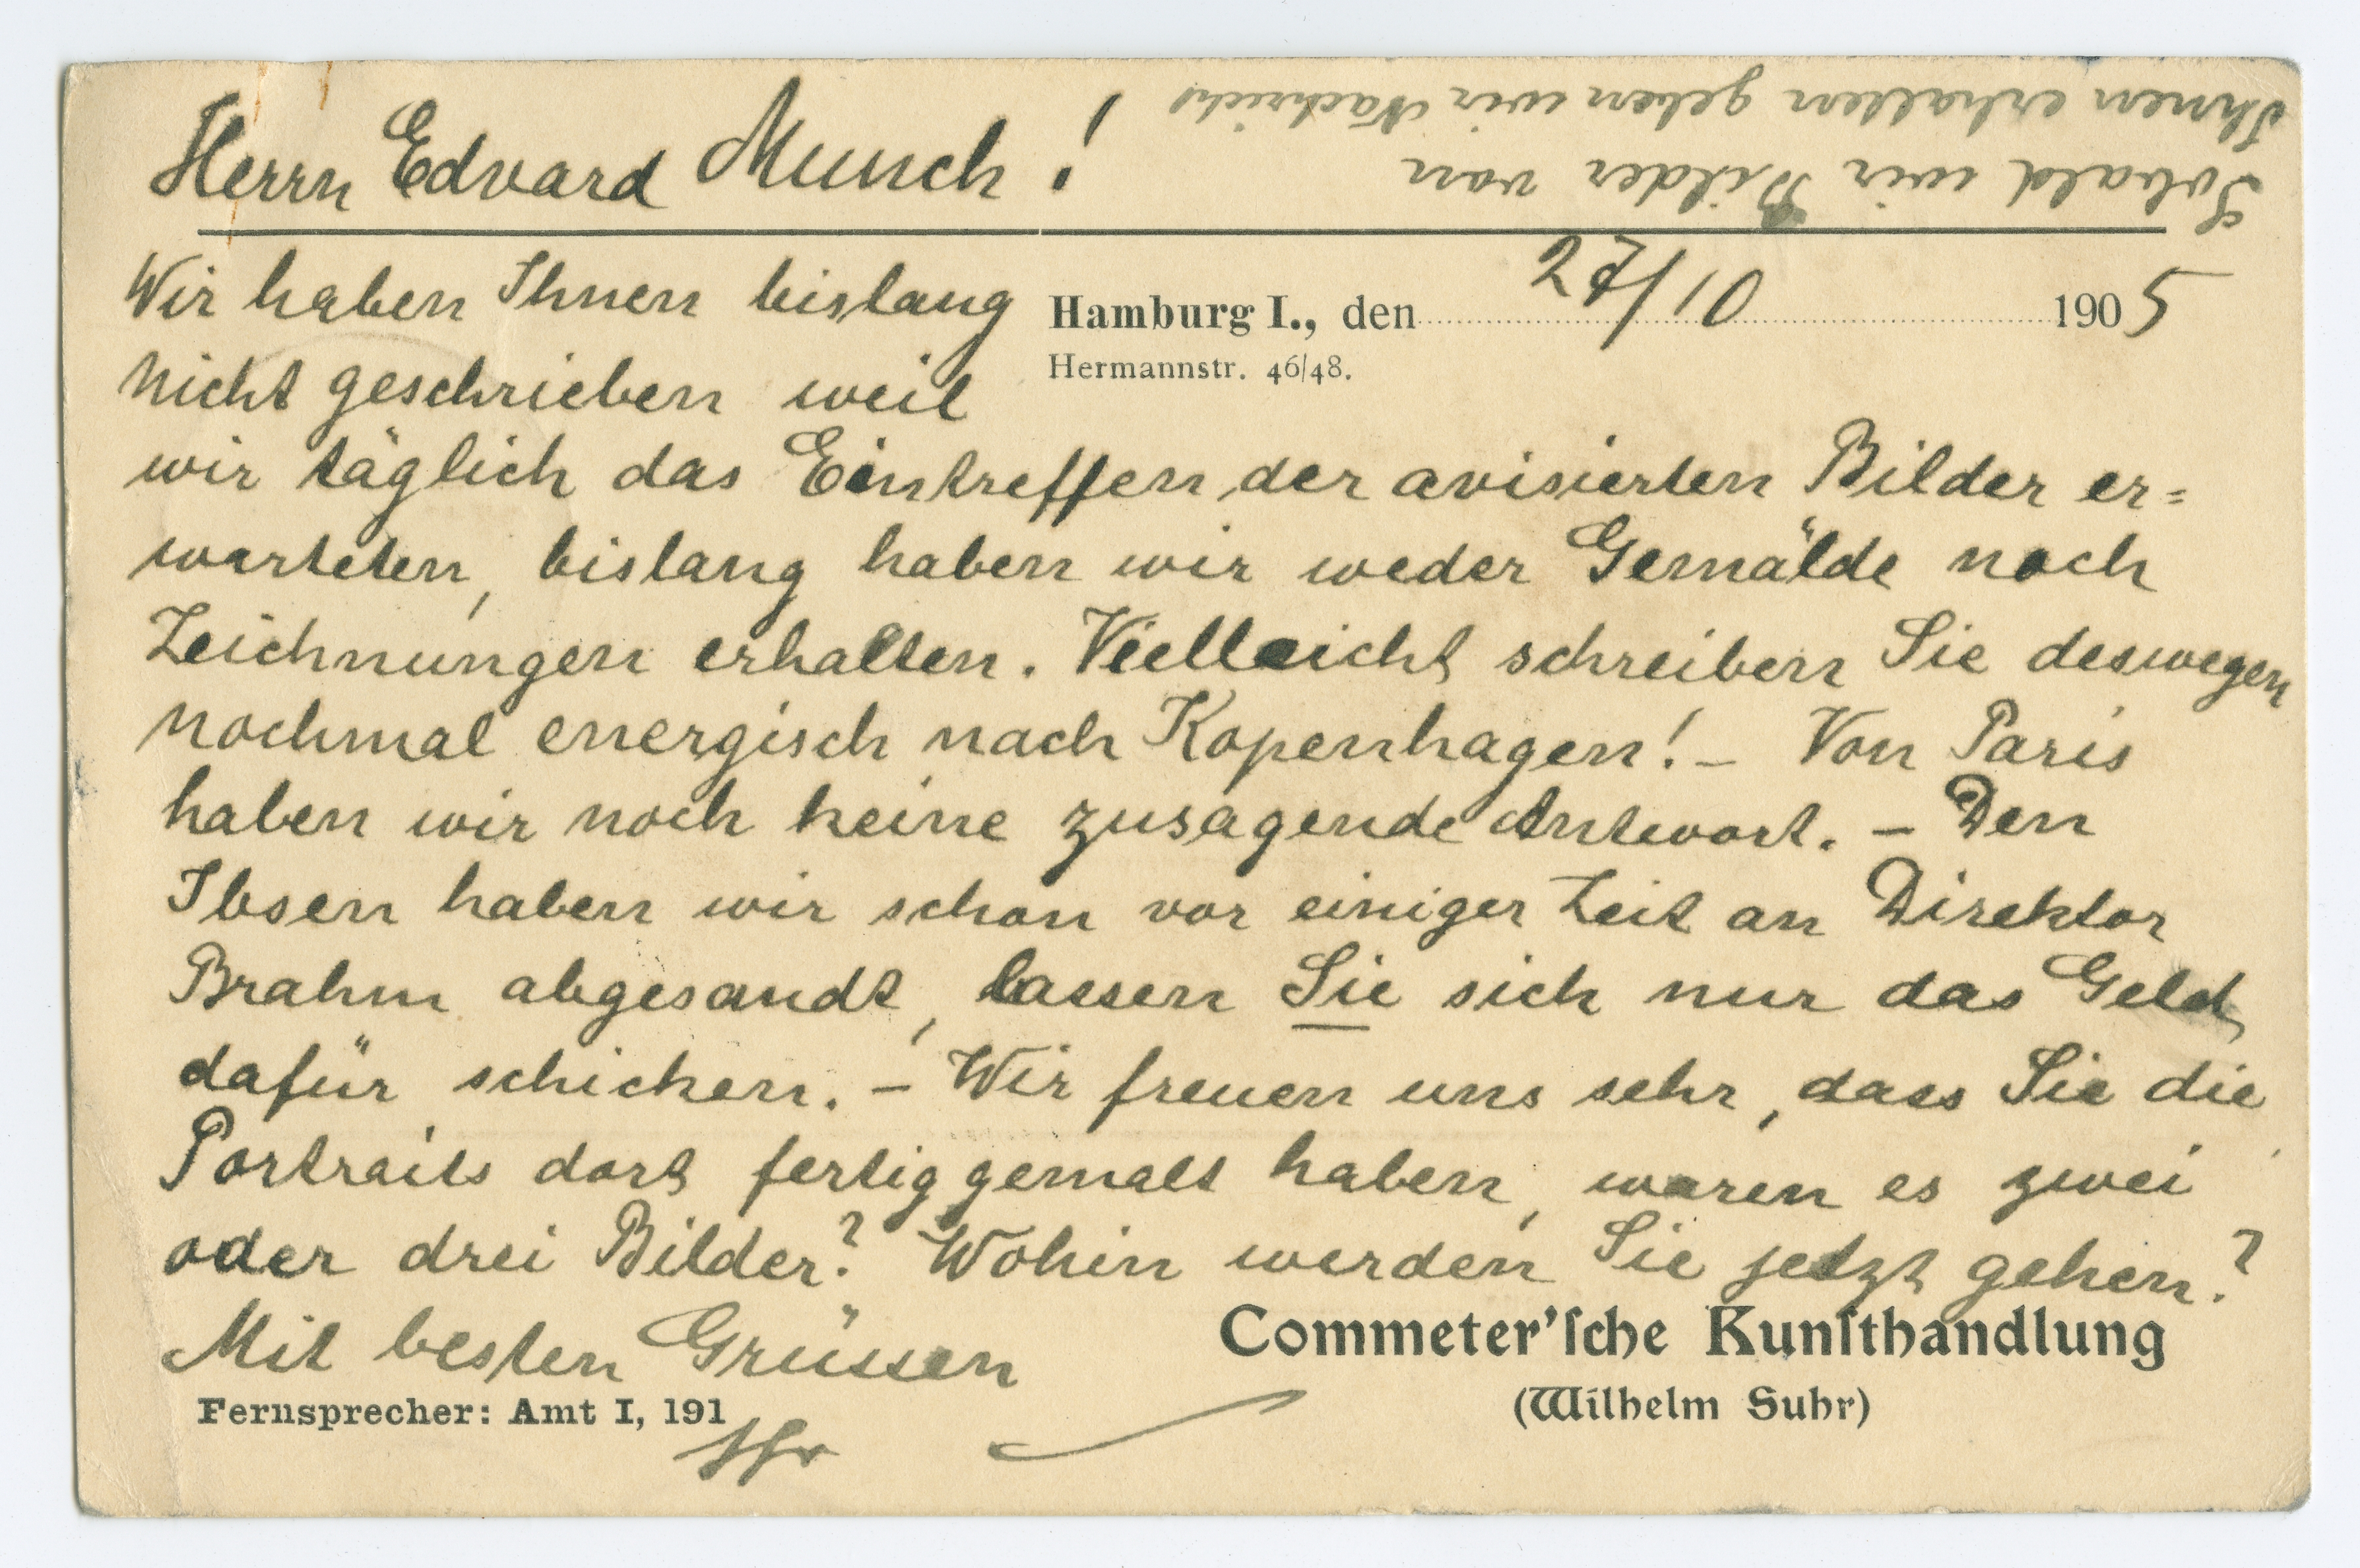 Herrn Edvard Munch!
Hamburg I., den 27/10 1905
Hermannstr. 46/48.
Wir haben Ihnen bislang
nicht geschrieben weil
wir täglich das Eintreffen der avisierten Bilder er=
warteten, bislang haben wir weder Gemälde noch
Zeichnungen erhalten. Vielleicht schreiben Sie deswegen
nochmal energisch nach Kopenhagen! – Von Paris
haben wir noch keine zusagende Antwort. – Den
Ibsen haben wir schon vor einiger Zeit an Direktor
Brahm abgesandt, lassen Sie sich nur das Geld
dafür schicken. – Wir freuen uns sehr, dass Sie die
Portraits dort fertig gemalt haben, waren es zwei
oder drei Bilder? Wohin werden Sie jetzt gehen?
Mit besten Grüssen
Commeter'ſche Kunſthandlung
(Wilhelm Suhr)
Fernsprecher: Amt I, 191
Sobald wir Bilder von
Ihnen erhalten geben wir Nachricht